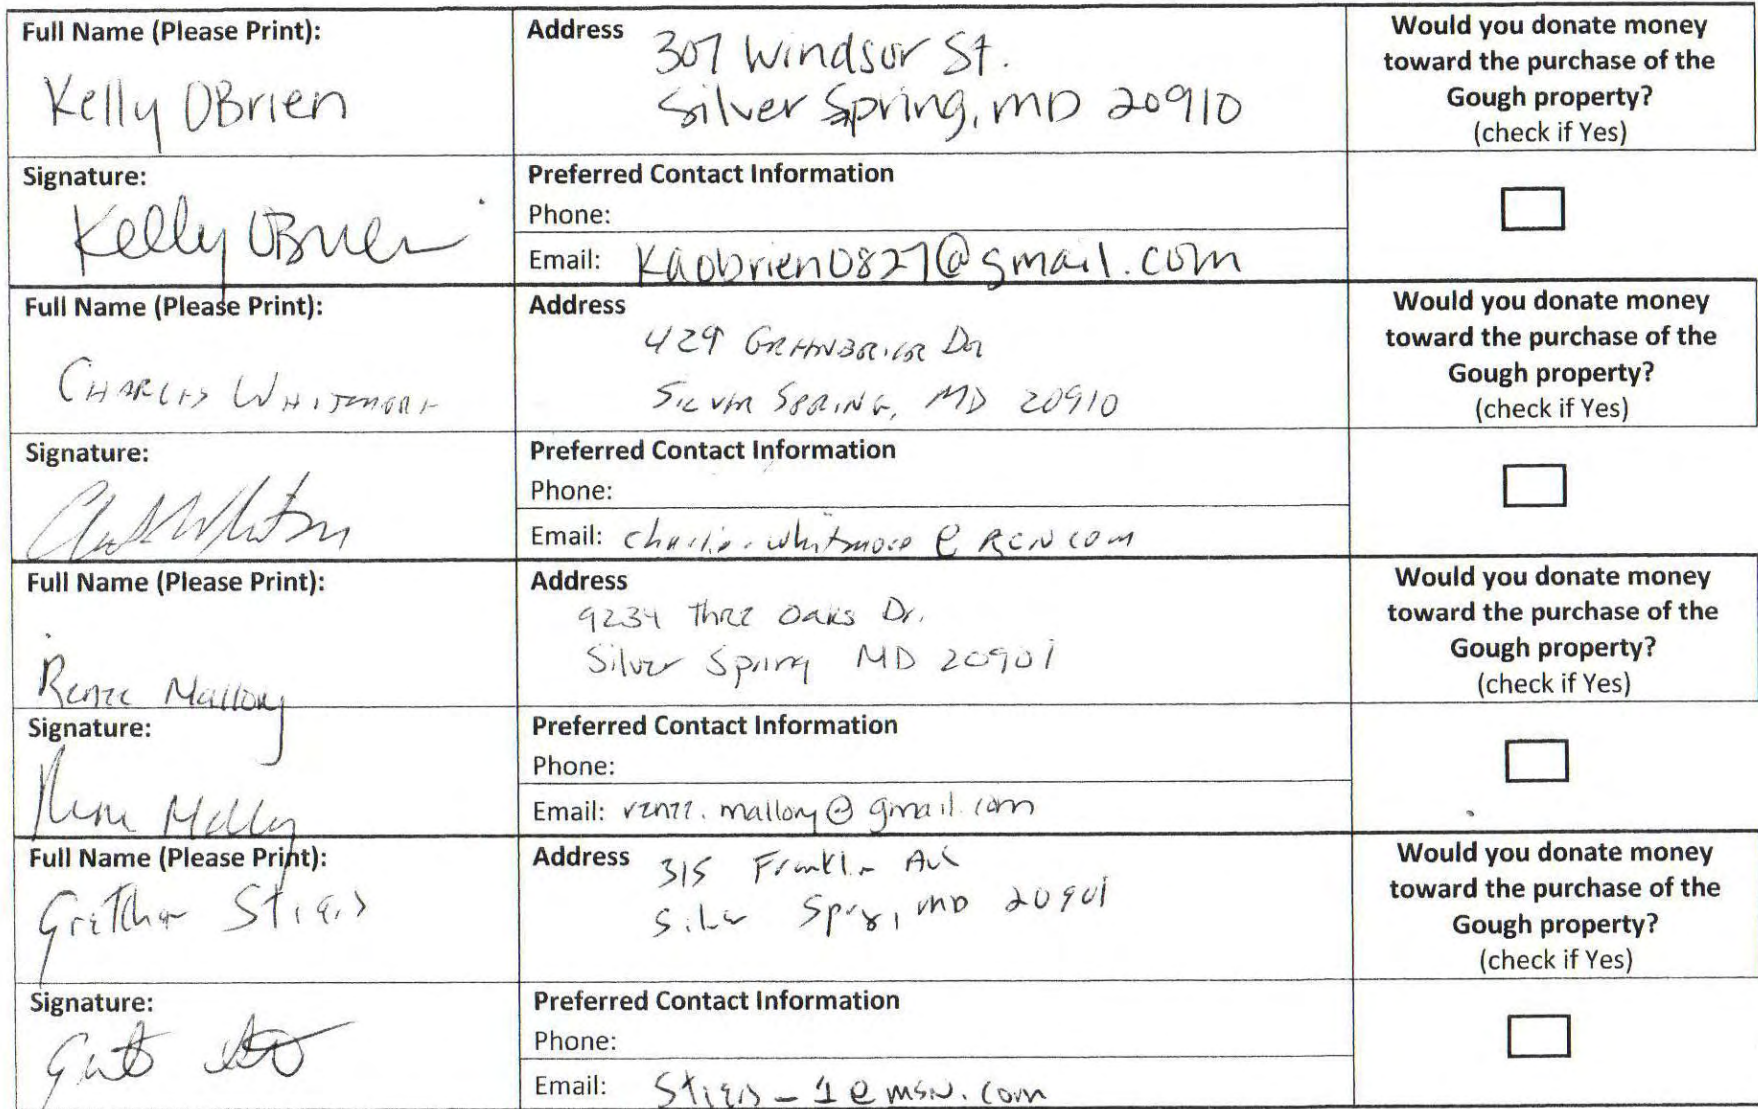 Full Name (Please Print):
Kelly OBrien
Address
307 Windsor St.
Silver Spring, MD 20910
Would you donate money
toward the purchase of the
Gough property?
(check if Yes)
Signature:
Kelly OBrien
Preferred Contact Information
Phone:
Email: Kaobrien0827@gmail.com
Full Name (Please Print):
CHARLES WHITMORE
Address
429 Dr
SILVER SPRING, MD 20910
Would you donate money
toward the purchase of the
Gough property?
(check if Yes)
Signature:
Preferred Contact Information
Phone:
Email: charlie.whitmore@RCN.com
Full Name (Please Print):
Renee Mallory
Address
9234 Three Oaks Dr.
Silver Spring MD 20901
Would you donate money
toward the purchase of the
Gough property?
(check if Yes)
Signature:
Preferred Contact Information
Phone:
Email: renee.mallory@gmail.com
Full Name (Please Print):
Gretchen
Address
315 Franklin Ave
Silver Spring, MD 20901
Would you donate money
toward the purchase of the
Gough property?
(check if Yes)
Signature:
Preferred Contact Information
Phone:
Email: